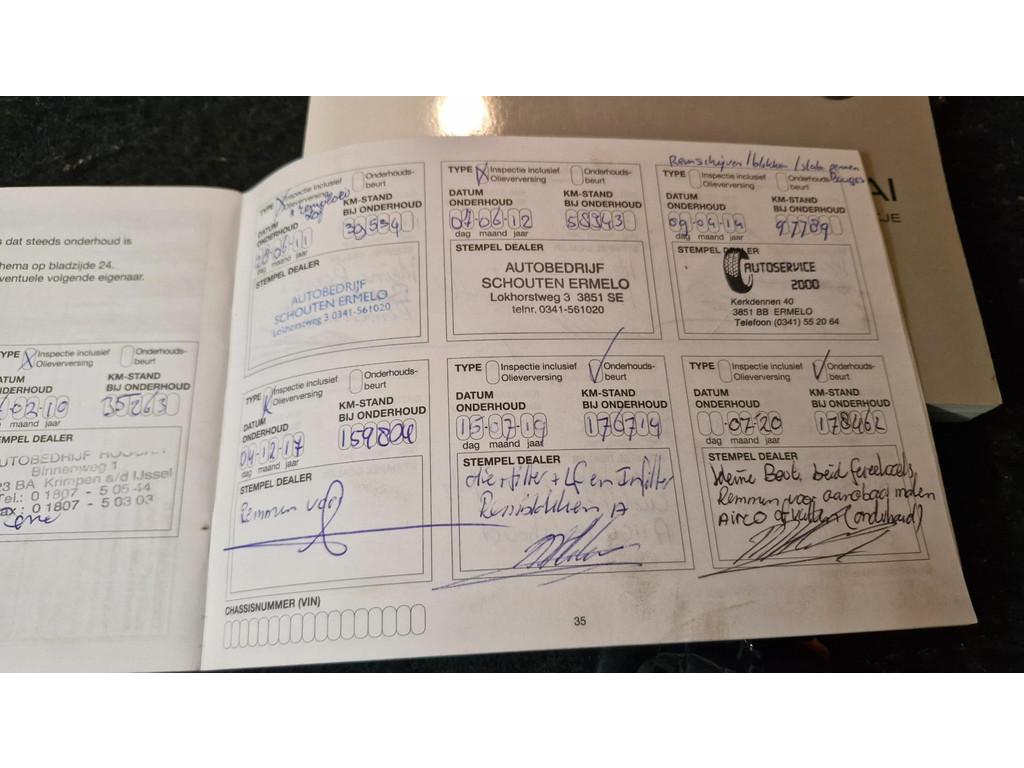 s dat steeds onderhoud is
hema op bladzijde 24.
eventuele volgende eigenaar.
TYPE Inspectie inclusief Olieverversing Onderhouds-beurt
DATUM ONDERHOUD KM-STAND BIJ ONDERHOUD
02-10 35263
dag maand jaar
STEMPEL DEALER
AUTOBEDRIJF
Binnenweg 1
23 BA Krimpen a/d IJssel
Tel.: 0 1807 - 5 05 44
Fax : 0 1807 - 5 03 03
TYPE Inspectie inclusief Olieverversing Onderhouds-beurt
DATUM ONDERHOUD KM-STAND BIJ ONDERHOUD
06-11 39534
dag maand jaar
STEMPEL DEALER
AUTOBEDRIJF
SCHOUTEN ERMELO
Lokhorstweg 3 0341-561020
TYPE Inspectie inclusief Olieverversing Onderhouds-beurt
DATUM ONDERHOUD KM-STAND BIJ ONDERHOUD
07-06-12 58943
dag maand jaar
STEMPEL DEALER
AUTOBEDRIJF
SCHOUTEN ERMELO
Lokhorstweg 3 3851 SE
telnr. 0341-561020
Remschijven/blokken
TYPE Inspectie inclusief Olieverversing Onderhouds-beurt
DATUM ONDERHOUD KM-STAND BIJ ONDERHOUD
09-04-14 97789
dag maand jaar
STEMPEL DEALER
AUTOSERVICE
2000
Kerkdennen 40
3851 BB ERMELO
Telefoon (0341) 55 20 64
TYPE Inspectie inclusief Olieverversing Onderhouds-beurt
DATUM ONDERHOUD KM-STAND BIJ ONDERHOUD
04-12-17 159804
dag maand jaar
STEMPEL DEALER
Remmen voor
TYPE Inspectie inclusief Olieverversing Onderhouds-beurt
DATUM ONDERHOUD KM-STAND BIJ ONDERHOUD
15-07-19 176719
dag maand jaar
STEMPEL DEALER
filter + Lf en
Remblokken, A
TYPE Inspectie inclusief Olieverversing Onderhouds-beurt
DATUM ONDERHOUD KM-STAND BIJ ONDERHOUD
-07-20 178462
dag maand jaar
STEMPEL DEALER
Kleine Beurt,
Remmen voor
Airco (onderhoud)
CHASSISNUMMER (VIN)
35
AI
JE